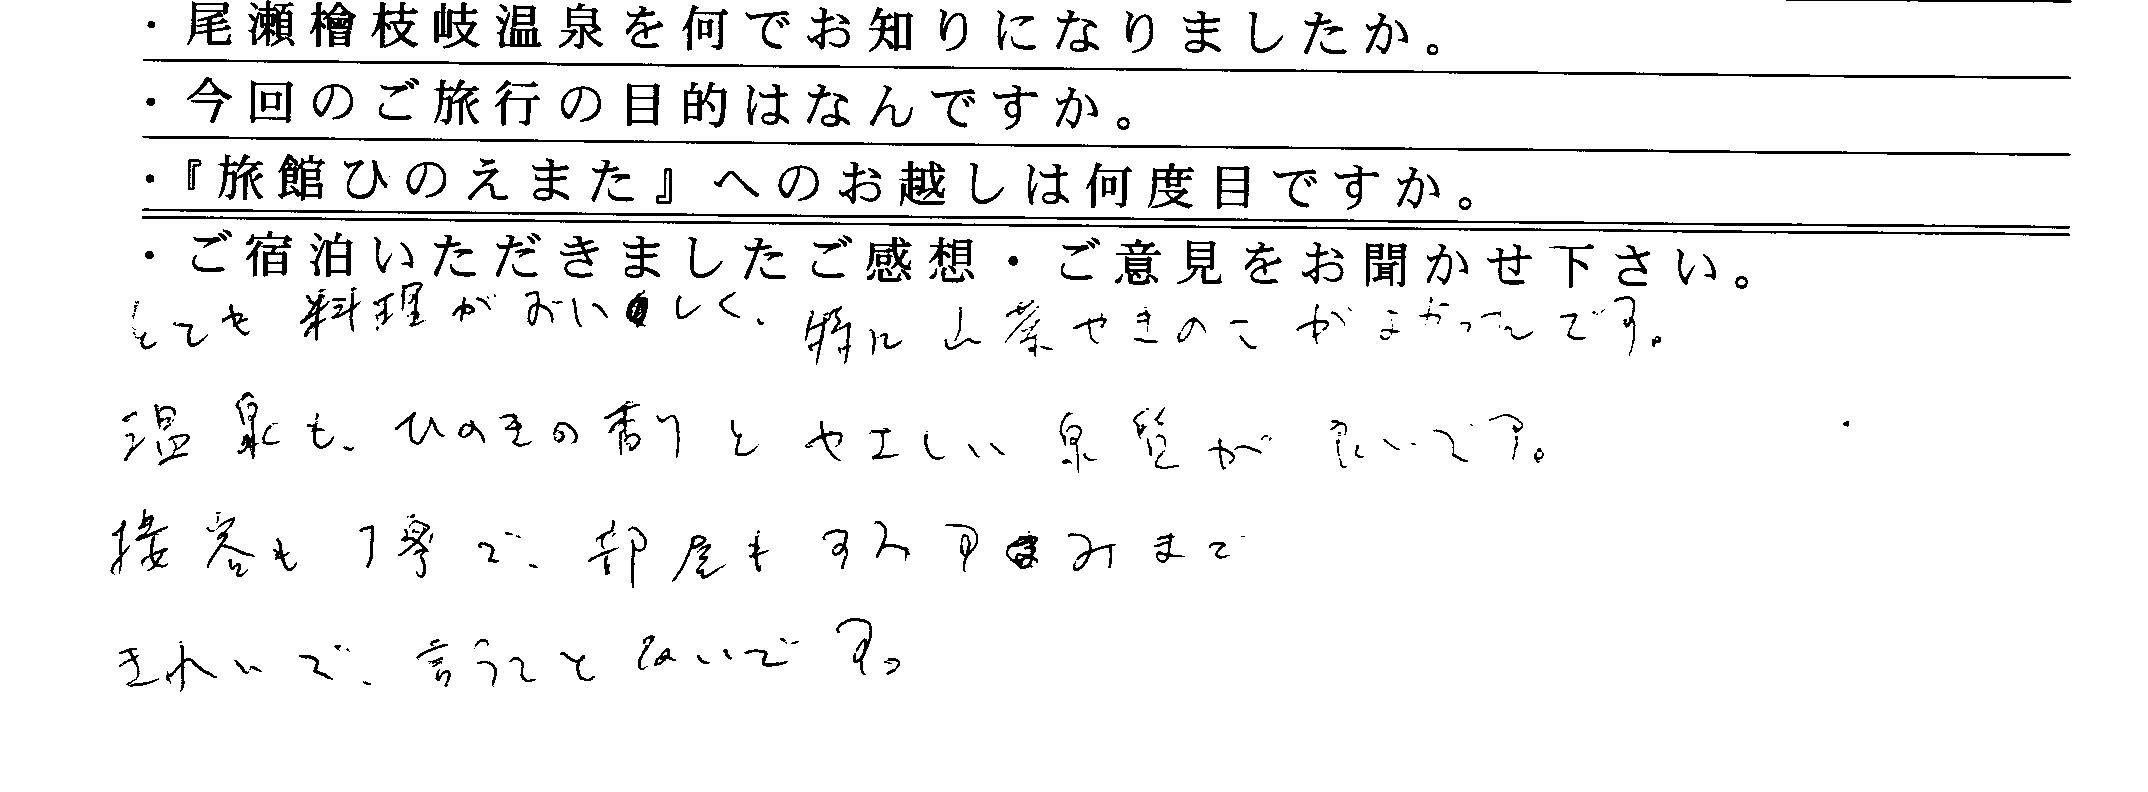 ・尾瀬檜枝岐温泉を何でお知りになりましたか。
・今回のご旅行の目的はなんですか。
・『旅館ひのえまた』へのお越しは何度目ですか。
・ご宿泊いただきましたご感想・ご意見をお聞かせ下さい。
とても料理がおいしく、特に山菜やきのこがよかったです。
温泉も、ひのきの香りとやさしい泉質が良いです。
接客も丁寧で、部屋もすみずみまで
きれいで、言うことないです。